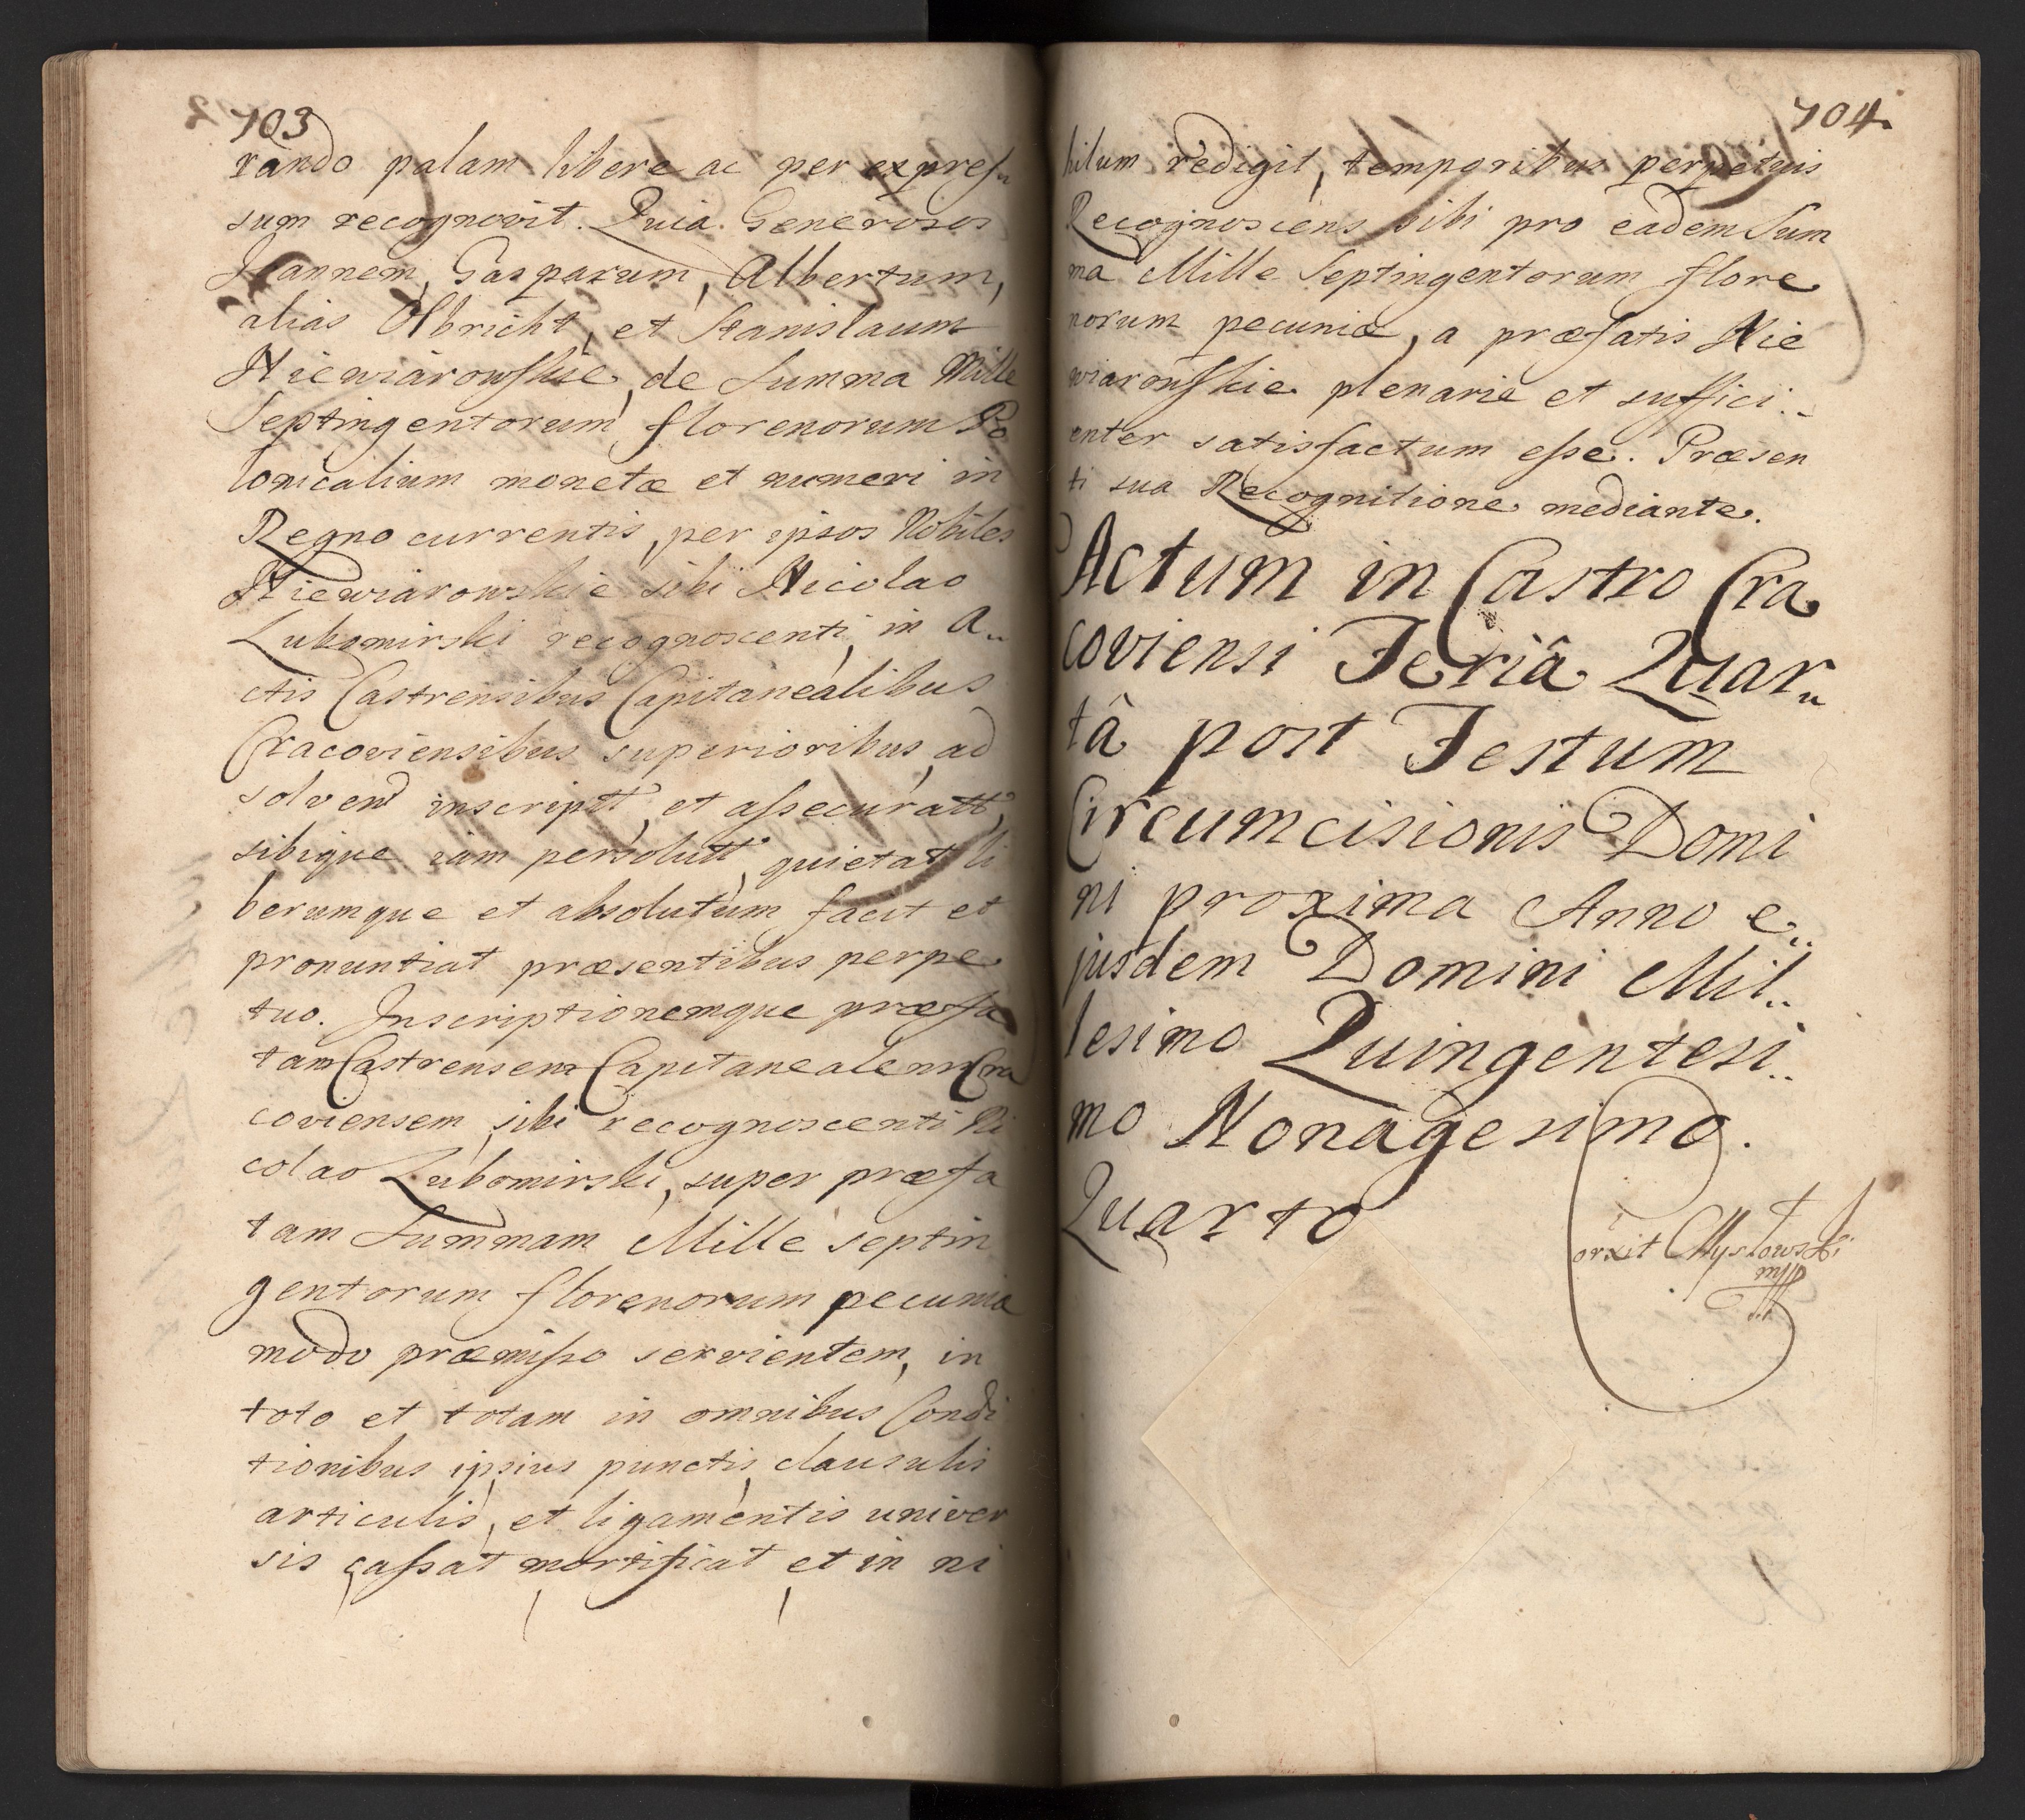 703
rando palam libere ac per expres„
sum recognovit. Quia Generosos
Joannem, Gasparum, Albertum,
alias Olbricht, et Stanislaum
Niewiarowskie, de Summa Mille
Septingentorum florenorum Po
lonicalium monetæ et numeri in
Regno currentis, per ipsos Nobiles
Niewiarowskie sibi Nicolao
Lubomirski recognoscenti, in A„
ctis Castrensibus Capitanealibus
Cracoviensibus superioribus, ad
solvend inscriptt, et assecuratt,
sibique iam persolutt, quietat li
berumque et absolutum facit et
pronuntiat præsentibus perpe
tuo. Inscriptionemque præfa
tam Castrensem Capitanealem Cra
coviensem, sibi recognoscenti Ni
colao Lubomirski, super præfa
tam Summam Mille septin
gentorum florenorum pecunia
modo præmisso servientem, in
toto et totam in omnibus Condi
tionibus ipsius punctis, clausulis
articulis, et ligamentis univer
sis cassat mortificat et in ni
704.
hilum redigit, temporibus perpetuis
Recognoscens sibi pro eadem Sum
ma Mille Septingentorum flore
norum pecuniæ, a præfatis Nie
wiarowskie plenarie et suffici„
enter satisfactum esse. Præsen
ti sua Recognitione mediante.
Actum in Castro Cra
coviensi Feriâ Quar„
tâ post Festum
Circumcisionis Domi
ni proxima Anno e„
jusdem Domini Mil„
lesimo Quingentesi„
mo Nonagesimo.
Quarto
Mysłowski
mpp